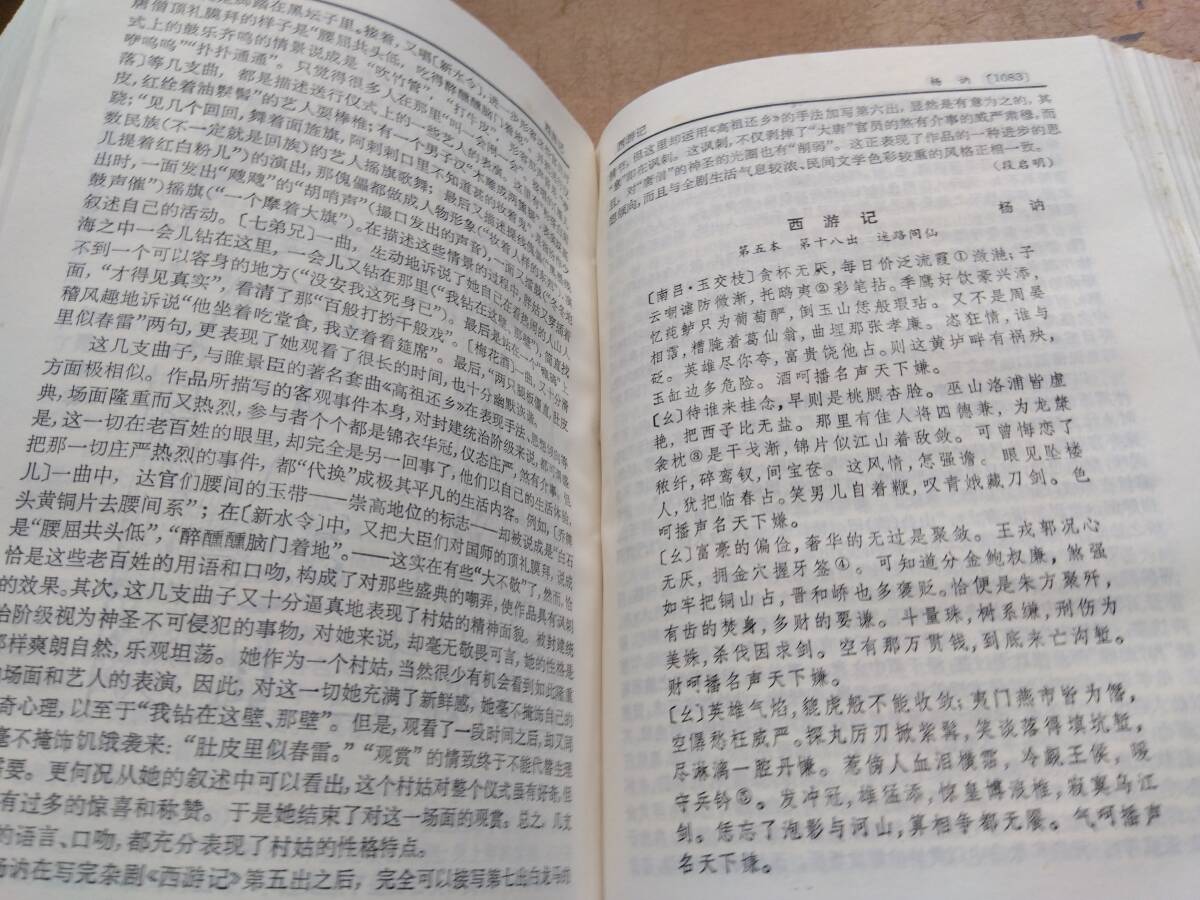 在黑坛子里。接着,又唱〔新水令〕,进一步形
唐僧顶礼膜拜的样子是“腰屈共头低,吃得醉醺醺脑门着地”,
式上的鼓乐齐鸣的情景说成是“吹竹管”,“打牛皮”,
咿呜呜”“扑扑通通”。只觉得很多人在那里“叫一会闹一会”。
落〕等几支曲,都是描述送行仪式上的一些艺人的表演,这里有
皮,红绘着油鬏髻”的艺人耍棒椎;有一个男子汉“木雕成两个
跷;“见几个回回,舞着面旌旗,阿剌剌口里不知道甚的
数民族(不一定就是回族)的艺人摇旗歌舞;最后又描述
儿提着红白粉儿”)的演出,那傀儡都做成人物形象(“妆着人样的
出时,一面发出“飕飕”的“胡哨声”(撮口发出的声音),一面又擂鼓
鼓声催”)摇旗(“一个摩着大旗”)。在描述这些情景的过程中,胖姑又穿插着
叙述自己的活动。〔七弟兄〕一曲,生动地诉说了她自己在看热闹的人山人
海之中一会儿钻在这里,一会儿又钻在那里(“我钻在这壁、那壁”),简直找
不到一个可以容身的地方(“没安我这死身已”)。最后是站在一个
面,“才得见真实”,看清了那“百般打扮千般戏”。〔梅花酒〕一曲,又十分滑
稽风趣地诉说“他坐着吃堂食,我立着看筵席”。最后,“两只腿板僵直,肚皮
里似春雷”两句,更表现了她观看了很长的时间,也十分幽默诙谐。
这几支曲子,与睢景臣的著名套曲《高祖还乡》在表现手法、思想倾向等
方面极相似。作品所描写的客观事件本身,对封建统治阶级来说,都可谓盛
典,场面隆重而又热烈,参与者个个都是锦衣华冠,仪态庄严,煞有介事。但
是,这一切在老百姓的眼里,却完全是另一回事了,他们以自己的生活体验,
把那一切庄严热烈的事件,都“代换”成极其平凡的生活内容。例如,〔乔牌
儿〕一曲中,达官们腰间的玉带——崇高地位的标志——却被说成是“白石
头黄铜片去腰间系”;在〔新水令〕中,又把大臣们对国师的顶礼膜拜,说成
是“腰屈共头低”,“醉醺醺脑门着地”。——这实在有些“大不敬”了,然而,恰
恰是这些老百姓的用语和口吻,构成了对那些盛典的嘲弄,使作品具有讽刺
的效果。其次,这几支曲子又十分逼真地表现了村姑的精神面貌。被封建统
治阶级视为神圣不可侵犯的事物,对她来说,却毫无敬畏可言,她的性格是
那样爽朗自然,乐观坦荡。她作为一个村姑,当然很少有机会看到如此隆重
的场面和艺人的表演,因此,对这一切她充满了新鲜感,她毫不掩饰自己的
奇心理,以至于“我钻在这壁、那壁”。但是,观看了一段时间之后,却又同
毫不掩饰饥饿袭来:“肚皮里似春雷。”“观赏”的情致终于不能代替生理
需要。更何况从她的叙述中可以看出,这个村姑对整个仪式虽有好奇,但
有过多的惊喜和称赞。于是她结束了对这一场面的观赏。总之,几支
的语言、口吻,都充分表现了村姑的性格特点。
杨讷在写完杂剧《西游记》第五出之后,完全可以接写第七出白龙马的
西游记 杨讷 〔1083〕
情节,但这里却运用《高祖还乡》的手法加写第六出,显然是有意为之的,其
意即在讽刺。这讽刺,不仅剥掉了“大唐”官员的煞有介事的威严肃穆,而
且,对“唐僧”的神圣的光圈也有“削弱”。这正表现了作品的一种进步的思
想倾向,而且与全剧生活气息较浓、民间文学色彩较重的风格正相一致。
(段启明)
西游记 杨讷
第五本 第十八出 迷路问仙
〔南吕·玉交枝〕贪杯无厌,每日价泛流霞①潋滟;子
云嘲谑防微渐,托鸱夷②彩笔拈。季鹰好饮豪兴添,
忆莼鲈只为葡萄酽,倒玉山恁般瑕玷。又不是周晏
相落,糟腌着葛仙翁,曲埋那张孝廉。恣狂情,谁与
砭。英雄尽你夸,富贵饶他占。则这黄垆畔有祸殃,
玉缸边多危险。酒呵播名声天下嫌。
〔幺〕待谁来挂念,早则是桃腮杏脸。巫山洛浦皆虚
艳,把西子比无盐。那里有佳人将四德兼,为龙漦
衾枕③是干戈渐,锦片似江山着敌敛。可曾悔恋了
秾纤,碎鸾钗,间宝奁。这风情,怎强谵。眼见坠楼
人,犹把临春占。笑男儿自着鞭,叹青娥藏刀剑。色
呵播声名天下嫌。
〔幺〕富豪的偏俭,奢华的无过是聚敛。王戎郭况心
无厌,拥金穴握牙签④。可知道分金鲍权廉,煞强
如牢把铜山占,晋和峤也多褒贬。恰便是朱方聚歼,
有齿的焚身,多财的要谦。斗量珠,树系缣,刑伤为
美姝,杀伐因求剑。空有那万贯钱,到底来亡沟堑。
财呵播名声天下嫌。
〔幺〕英雄气焰,貔虎般不能收敛;夷门燕市皆为僭,
空僝愁枉威严。探丸厉刃掀紫髯,笑谈落得填坑堑,
尽淋漓一腔丹慊。惹傍人血泪横霑,冷觑王侯,暖
守兵钤⑤。发冲冠,雄猛添,惊皇博浪椎,寂寞乌江
剑。恁忘了泡影与河山,真相争都无餍。气呵播声
名天下嫌。